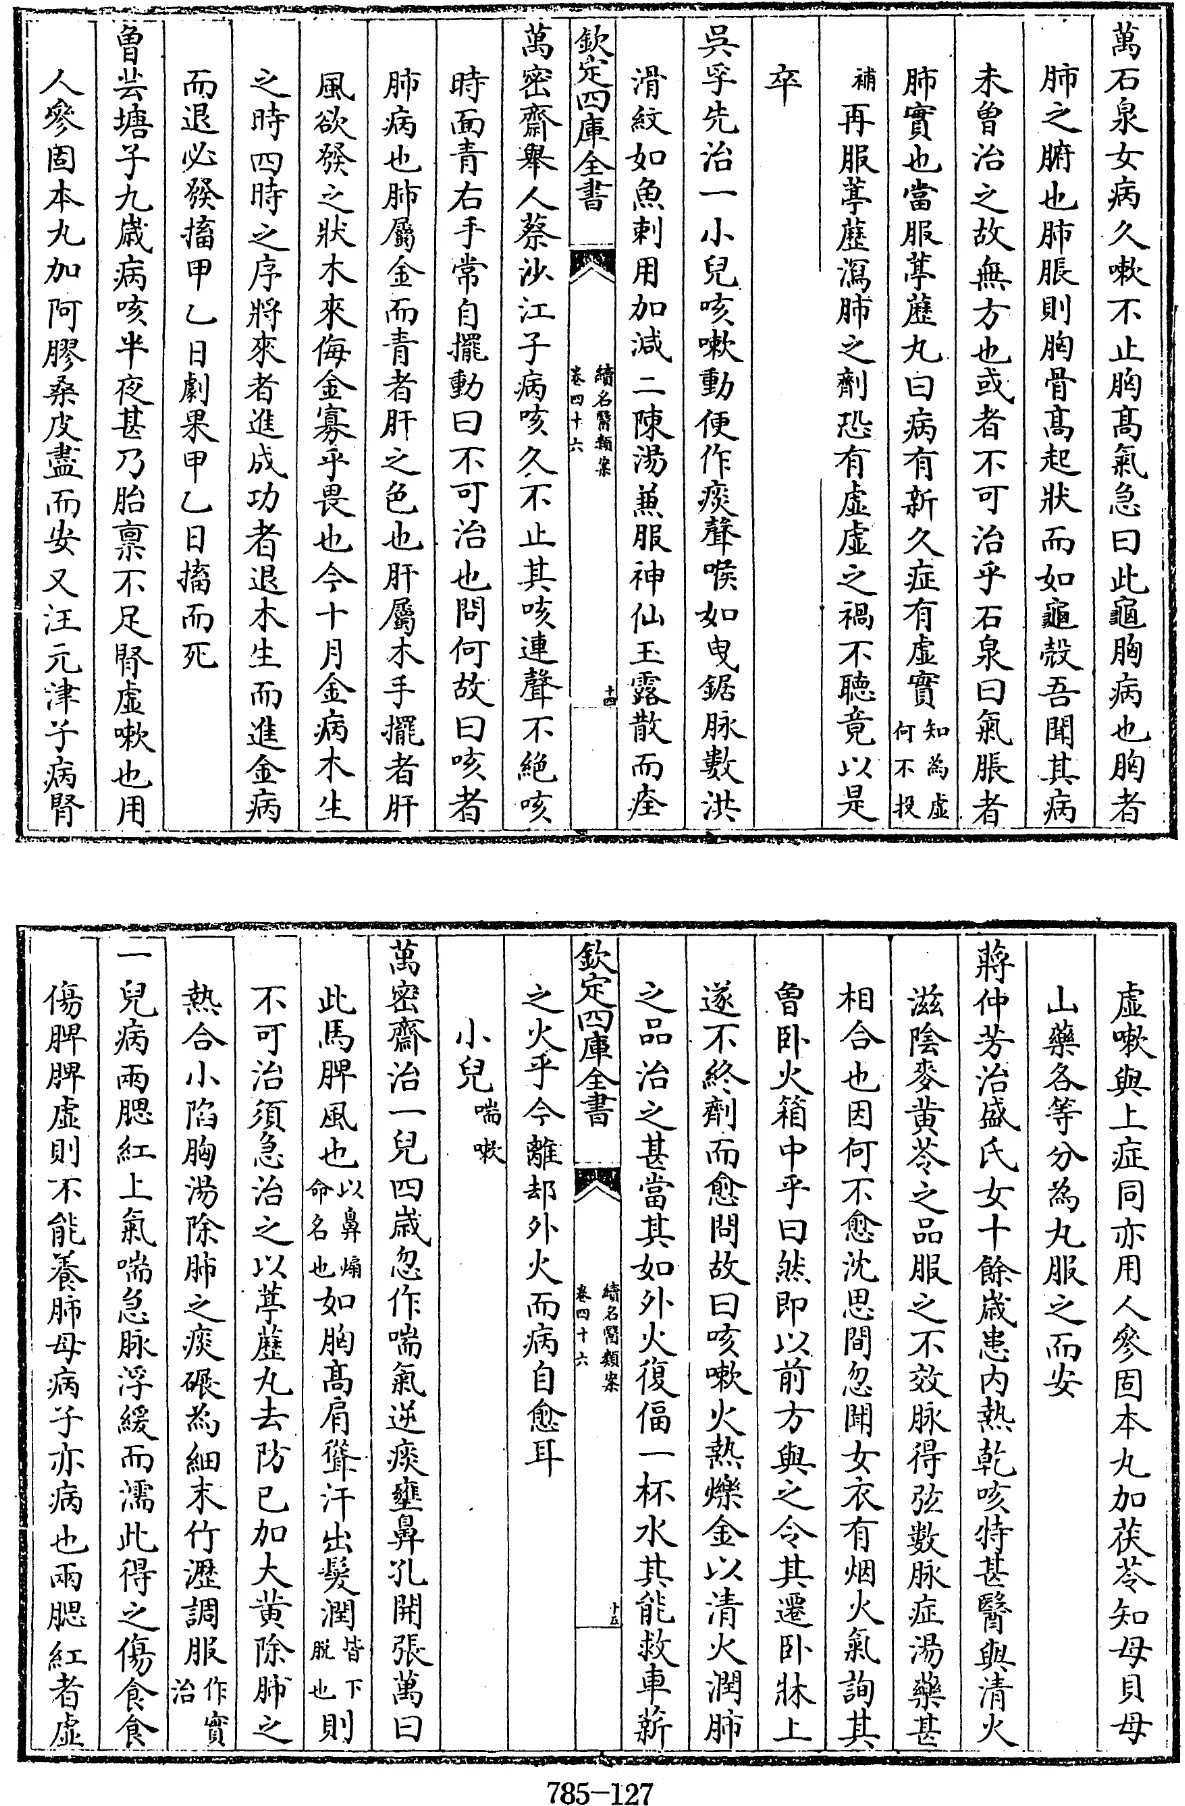 萬石泉女病久嗽不止胸髙氣急曰此龜胸病也胸者
肺之腑也肺脹則胸骨髙起狀而如龜殻吾聞其病
未曽治之故無方也或者不可治乎石泉曰氣脹者
肺實也當服葶藶丸曰病有新久症有虚實知為虚何不投
補再服葶藶瀉肺之劑恐有虚虚之禍不聽竟以是
卒
吳孚先治一小兒咳嗽動便作痰聲喉如曳鋸脉數洪
滑紋如魚刺用加減二陳湯兼服神仙玉露散而痊
欽定四庫全書
續名醫類案
卷四十六
十四
萬密齋舉人蔡沙江子病咳久不止其咳連聲不絶咳
時面青右手常自擺動曰不可治也問何故曰咳者
肺病也肺屬金而青者肝之色也肝屬木手擺者肝
風欲發之狀木來侮金寡乎畏也今十月金病木生
之時四時之序將來者進成功者退木生而進金病
而退必發搐甲乙日劇果甲乙日搐而死
曽芸塘子九歲病咳半夜甚乃胎禀不足腎虚嗽也用
人參固本丸加阿膠桑皮盡而安又汪元津子病腎
虚嗽與上症同亦用人參固本丸加茯苓知母貝母
山藥各等分為丸服之而安
蔣仲芳治盛氏女十餘歲患内熱乾咳特甚醫與清火
滋陰麥黄苓之品服之不效脉得弦數脉症湯藥甚
相合也因何不愈沈思間忽聞女衣有烟火氣詢其
曽卧火箱中乎曰然即以前方與之令其遷卧牀上
遂不終劑而愈問故曰咳嗽火熱爍金以清火潤肺
之品治之甚當其如外火復偪一杯水其能救車薪
欽定四庫全書
續名醫類案
卷四十六
十五
之火乎今離却外火而病自愈耳
小兒喘嗽
萬密齋治一兒四歲忽作喘氣逆痰壅鼻孔開張萬曰
此馬脾風也以鼻煽命名也如胸髙肩聳汗出髮潤皆下脱也則
不可治須急治之以葶藶丸去防已加大黄除肺之
熱合小陷胸湯除肺之痰碾為細末竹瀝調服作實治
一兒病兩腮紅上氣喘急脉浮緩而濡此得之傷食食
傷脾脾虚則不能養肺母病子亦病也兩腮紅者虚
785-127